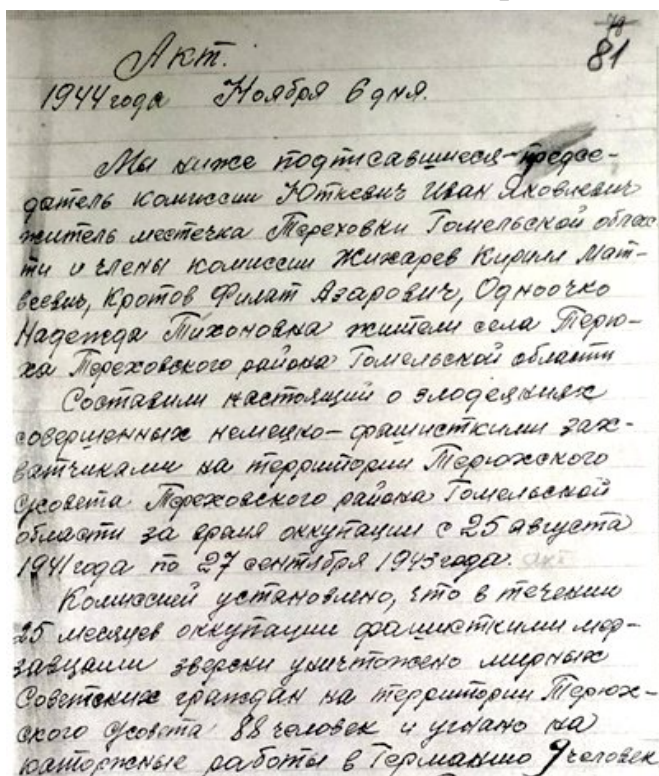 78
81
Акт.
1944 года Ноября 6 дня.
Мы ниже подписавшиеся-предсе-
датель комиссии Юткевич Иван Яковлевич
житель местечка Тереховки Гомельской облас-
ти и члены комиссии Жихарев Кирилл Мат-
веевич, Кротов Филат Азарович, Одноочко
Надежда Тихоновна жители села Терю-
ха Тереховского района Гомельской области
Составили настоящий о злодеяниях
совершенных немецко-фашисткими зах-
ватчиками на территории Терюхского
с/совета Тереховского района Гомельской
области за время оккупации с 25 августа
1941 года по 27 сентября 1943 года. акт
Комиссией установлено, что в течении
25 месяцев оккупации фашисткими мер-
завцами зверски уничтожено мирных
Советских граждан на территории Терюх-
ского с/совета 88 человек и угнано на
каторжные работы в Германию 9 человек